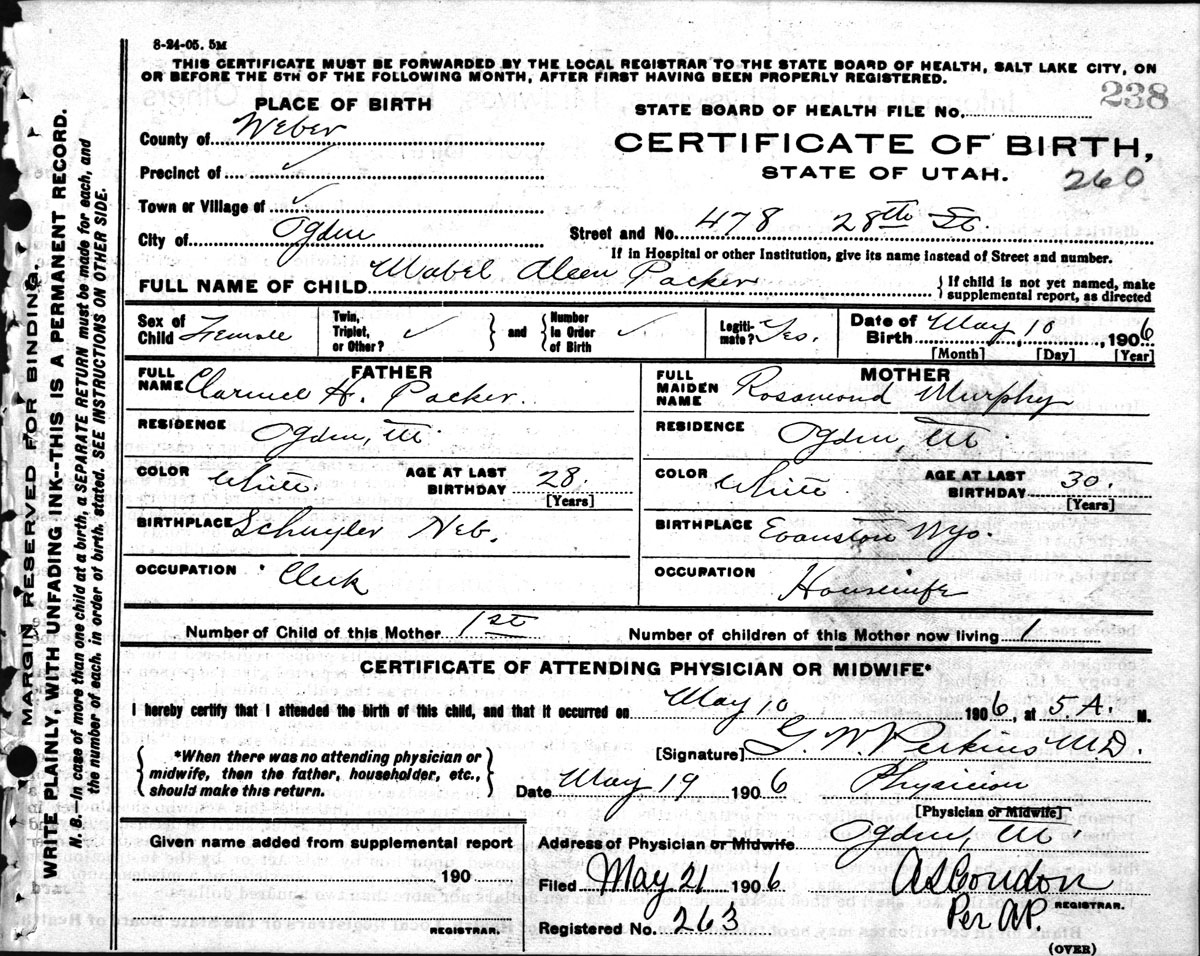 8-24-05. 5M
THIS CERTIFICATE MUST BE FORWARDED BY THE LOCAL REGISTRAR TO THE STATE BOARD OF HEALTH, SALT LAKE CITY, ON
OR BEFORE THE 5TH OF THE FOLLOWING MONTH, AFTER FIRST HAVING BEEN PROPERLY REGISTERED.
238
PLACE OF BIRTH
STATE BOARD OF HEALTH FILE No.
County of Weber
CERTIFICATE OF BIRTH,
Precinct of ✓
STATE OF UTAH.
260
Town or Village of ✓
City of Ogden
Street and No. 478 28th St
If in Hospital or other Institution, give its name instead of Street and number.
FULL NAME OF CHILD Mabel Aleen Packer
{ If child is not yet named, make
supplemental report, as directed
Sex of Child Female
Twin, Triplet, or Other? ✓ } and { Number in Order of Birth ✓
Legitimate? Yes.
Date of Birth May 10, 1906
[Month] [Day] [Year]
FATHER
FULL NAME Clarence H. Packer.
RESIDENCE Ogden, Ut.
COLOR White. AGE AT LAST BIRTHDAY 28.
[Years]
BIRTHPLACE Schuyler Neb.
OCCUPATION Clerk
MOTHER
FULL MAIDEN NAME Rosamond Murphy
RESIDENCE Ogden, Ut
COLOR White. AGE AT LAST BIRTHDAY 30.
[Years]
BIRTHPLACE Evanston Wyo.
OCCUPATION Housewife
Number of Child of this Mother 1st
Number of children of this Mother now living 1
CERTIFICATE OF ATTENDING PHYSICIAN OR MIDWIFE*
I hereby certify that I attended the birth of this child, and that it occurred on May 10 1906, at 5. A. M.
[Signature] G. W. Perkins M.D.
{ *When there was no attending physician or
midwife, then the father, householder, etc.,
should make this return. }
Date May 19 1906 Physician
[Physician or Midwife]
Address of Physician or Midwife Ogden, Ut
Given name added from supplemental report
190
REGISTRAR.
Filed May 21 1906 A S Condon
REGISTRAR.
Per A.P.
Registered No. 263
(OVER)
MARGIN RESERVED FOR BINDING.
WRITE PLAINLY, WITH UNFADING INK--THIS IS A PERMANENT RECORD.
N. B.—In case of more than one child at a birth, a SEPARATE RETURN must be made for each, and
the number of each, in order of birth, stated. SEE INSTRUCTIONS ON OTHER SIDE.